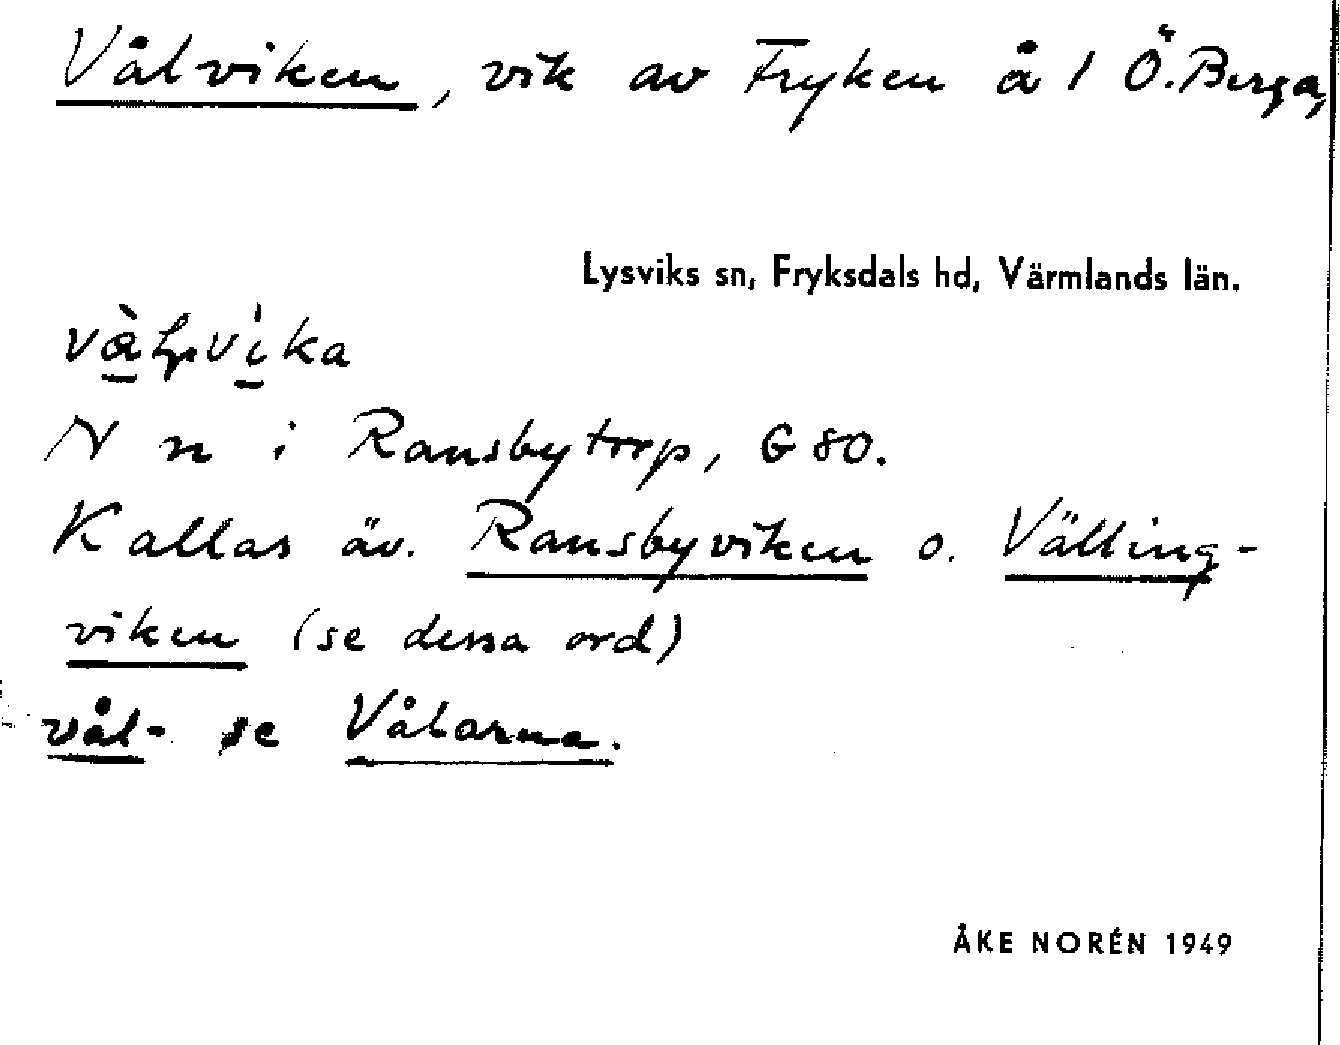 Vålviken, vik av Fryken å 1 Ö. Berga,
Lysviks sn, Fryksdals hd, Värmlands län.
N n i Ransbytorp, G 80.
Kallas äv. Ransbyviken o. Välling-
viken (se dessa ord)
vål- se Vålarna.
ÅKE NORÉN 1949